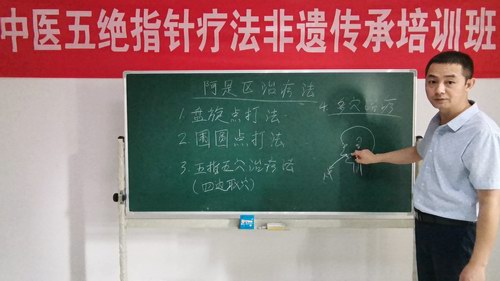 中医五绝指针疗法非遗传承培训班
阿是区治疗法
1.盘旋点打法
2.围圆点打法
3.五指五穴治疗法
(四边取穴)
4.多穴治疗